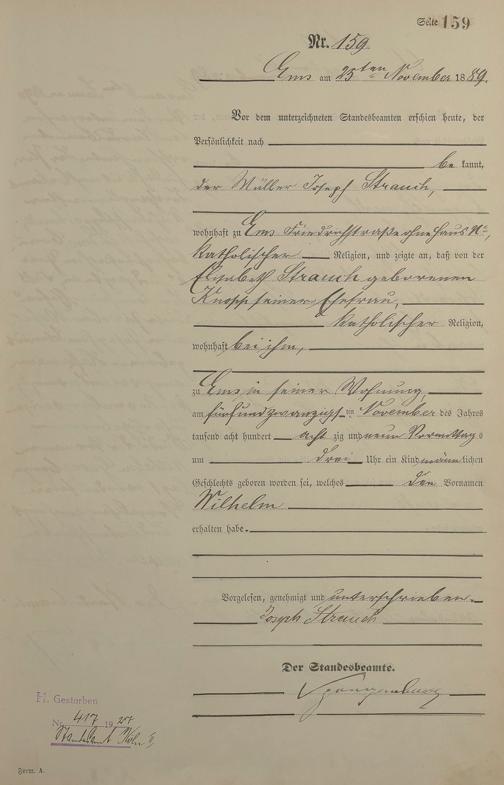 Seite 159
Nr. 159
Ems am 25ten November 1889.
Vor dem unterzeichneten Standesbeamten erschien heute, der
Persönlichkeit nach
be kannt,
der Müller Joseph Strauch,
wohnhaft zu Ems Friedrichstraße ohne Haus Nr.,
katholischer Religion, und zeigte an, daß von der
Elisabeth Strauch geborenen
seiner Ehefrau,
katholischer Religion,
wohnhaft bei ihm,
zu Ems in seiner Wohnung,
am fünfundzwanzigsten November des Jahres
tausend acht hundert acht zig und neun Vormittags
um drei Uhr ein Kind männlichen
Geschlechts geboren worden sei, welches den Vornamen
Wilhelm
erhalten habe.
Vorgelesen, genehmigt und unterschrieben.
Joseph Strauch
Der Standesbeamte.
H. Gestorben
Nr. 417 19
Standesamt Köln
Form. A.